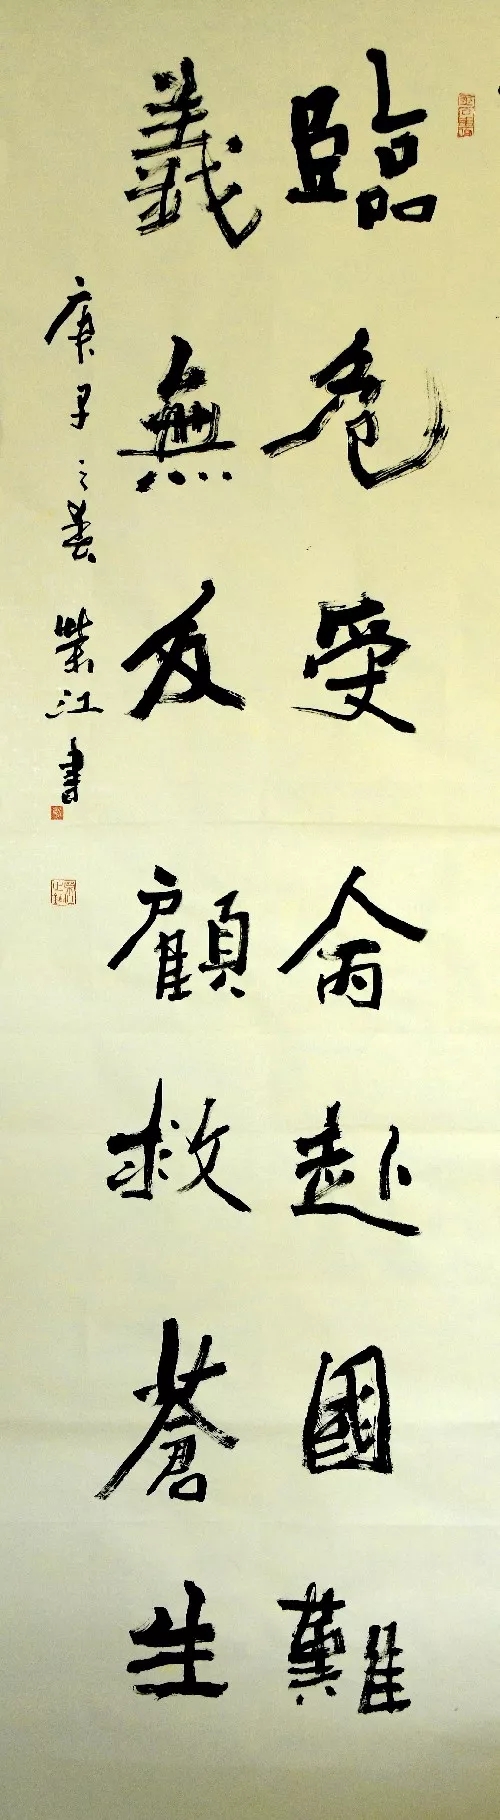 臨危受命赴國難
義無反顧救蒼生
庚子之春 榮江書